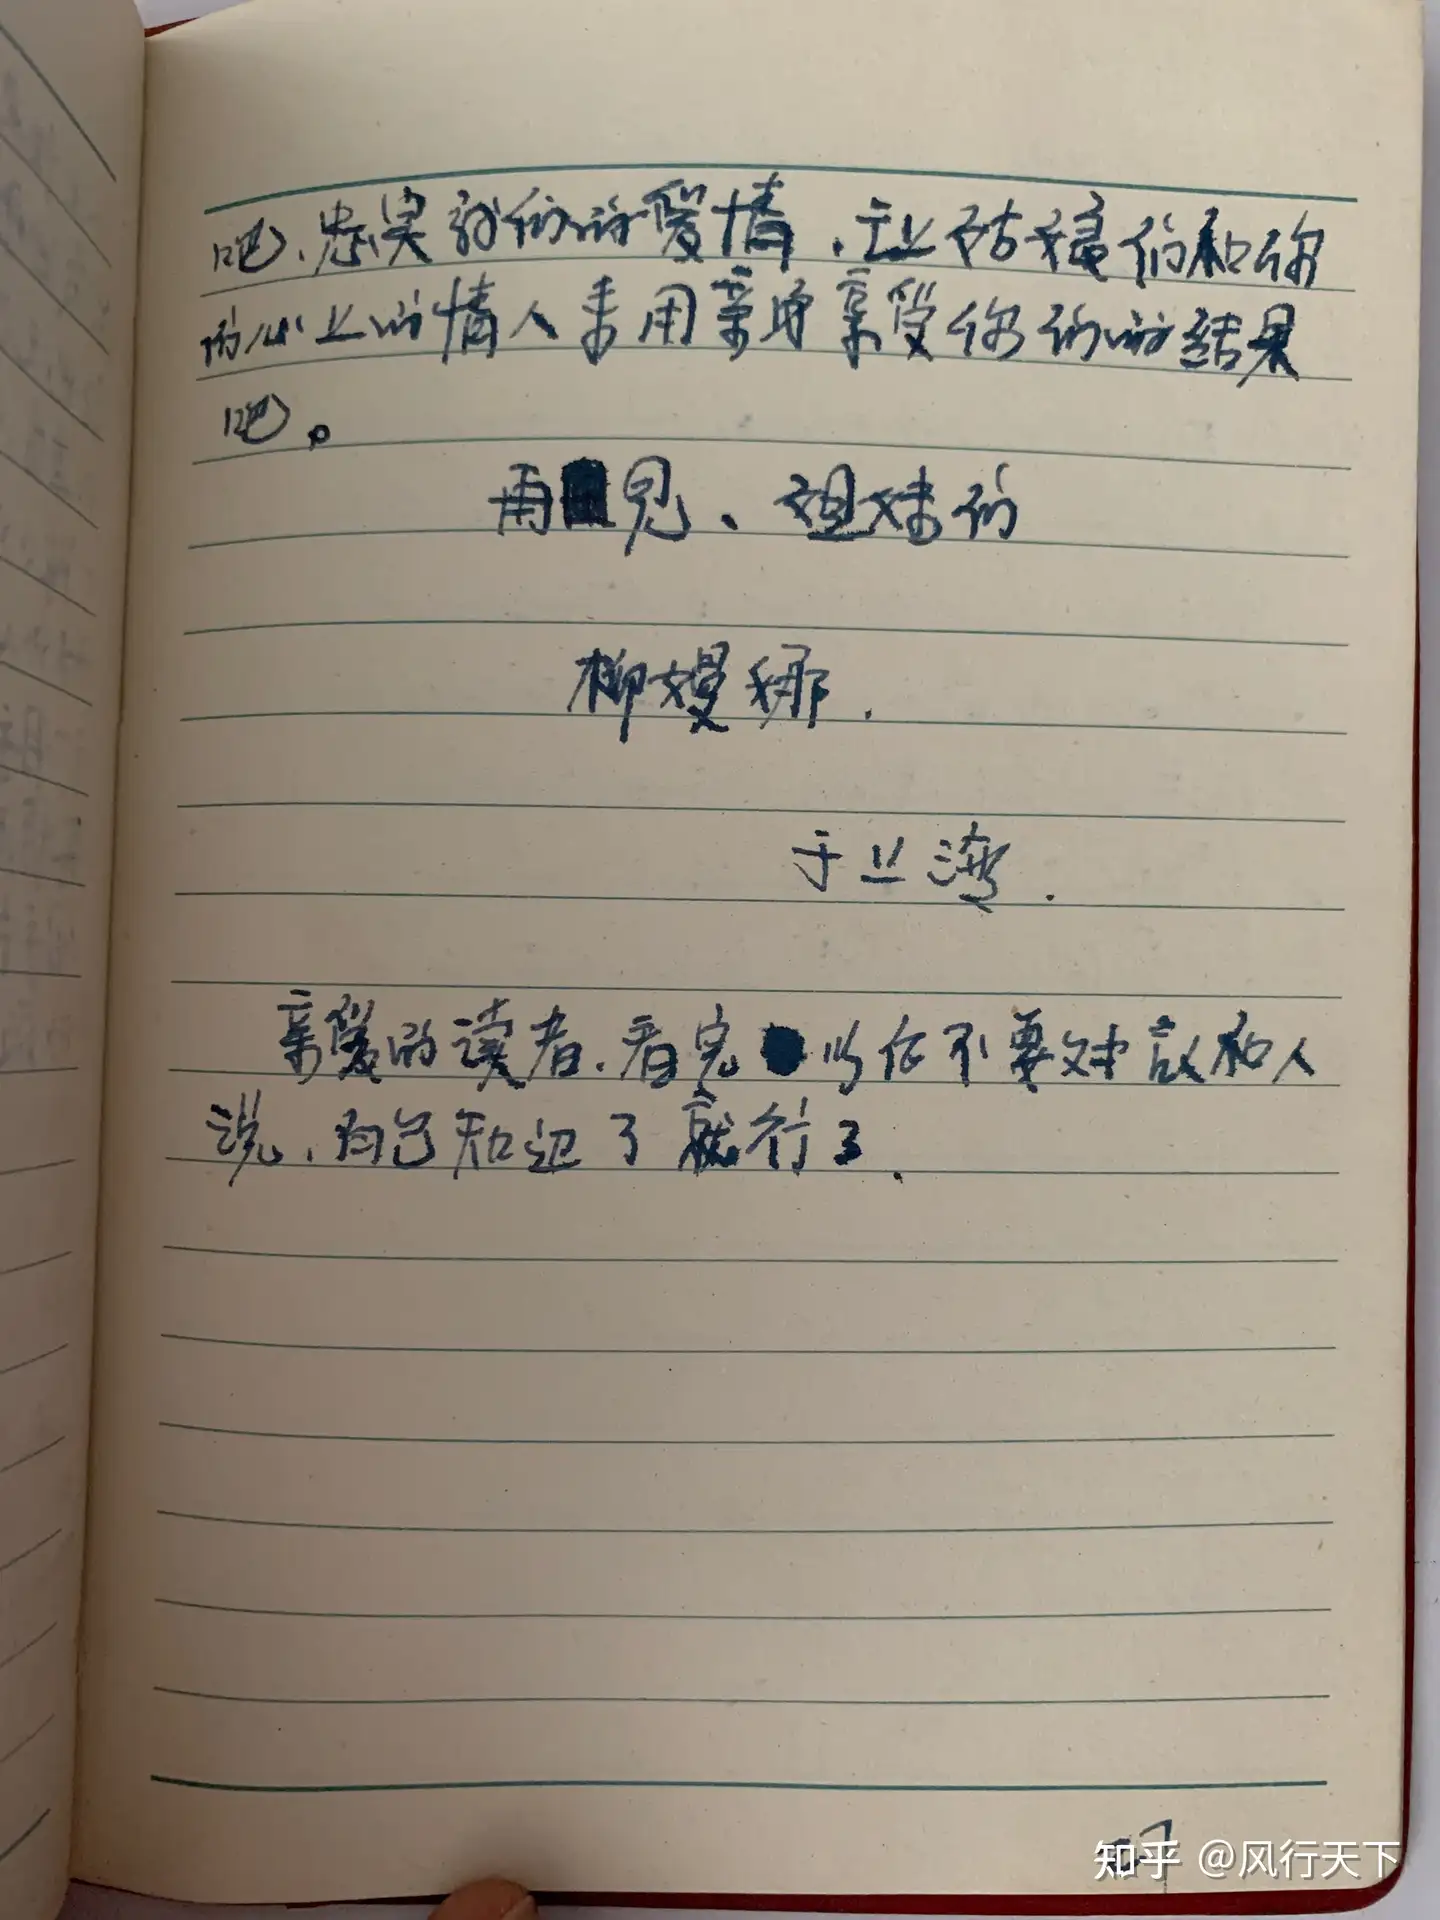 吧、忠实于你们的爱情,于上祜福你们和你
的心上的情人来用亲身享受你们的结果
吧。
再见、姐妹们
柳嫚娜.
于上湾.
亲爱的读者.看完以后不要对敌和人
说、自己知道了就行了.
知乎 @风行天下